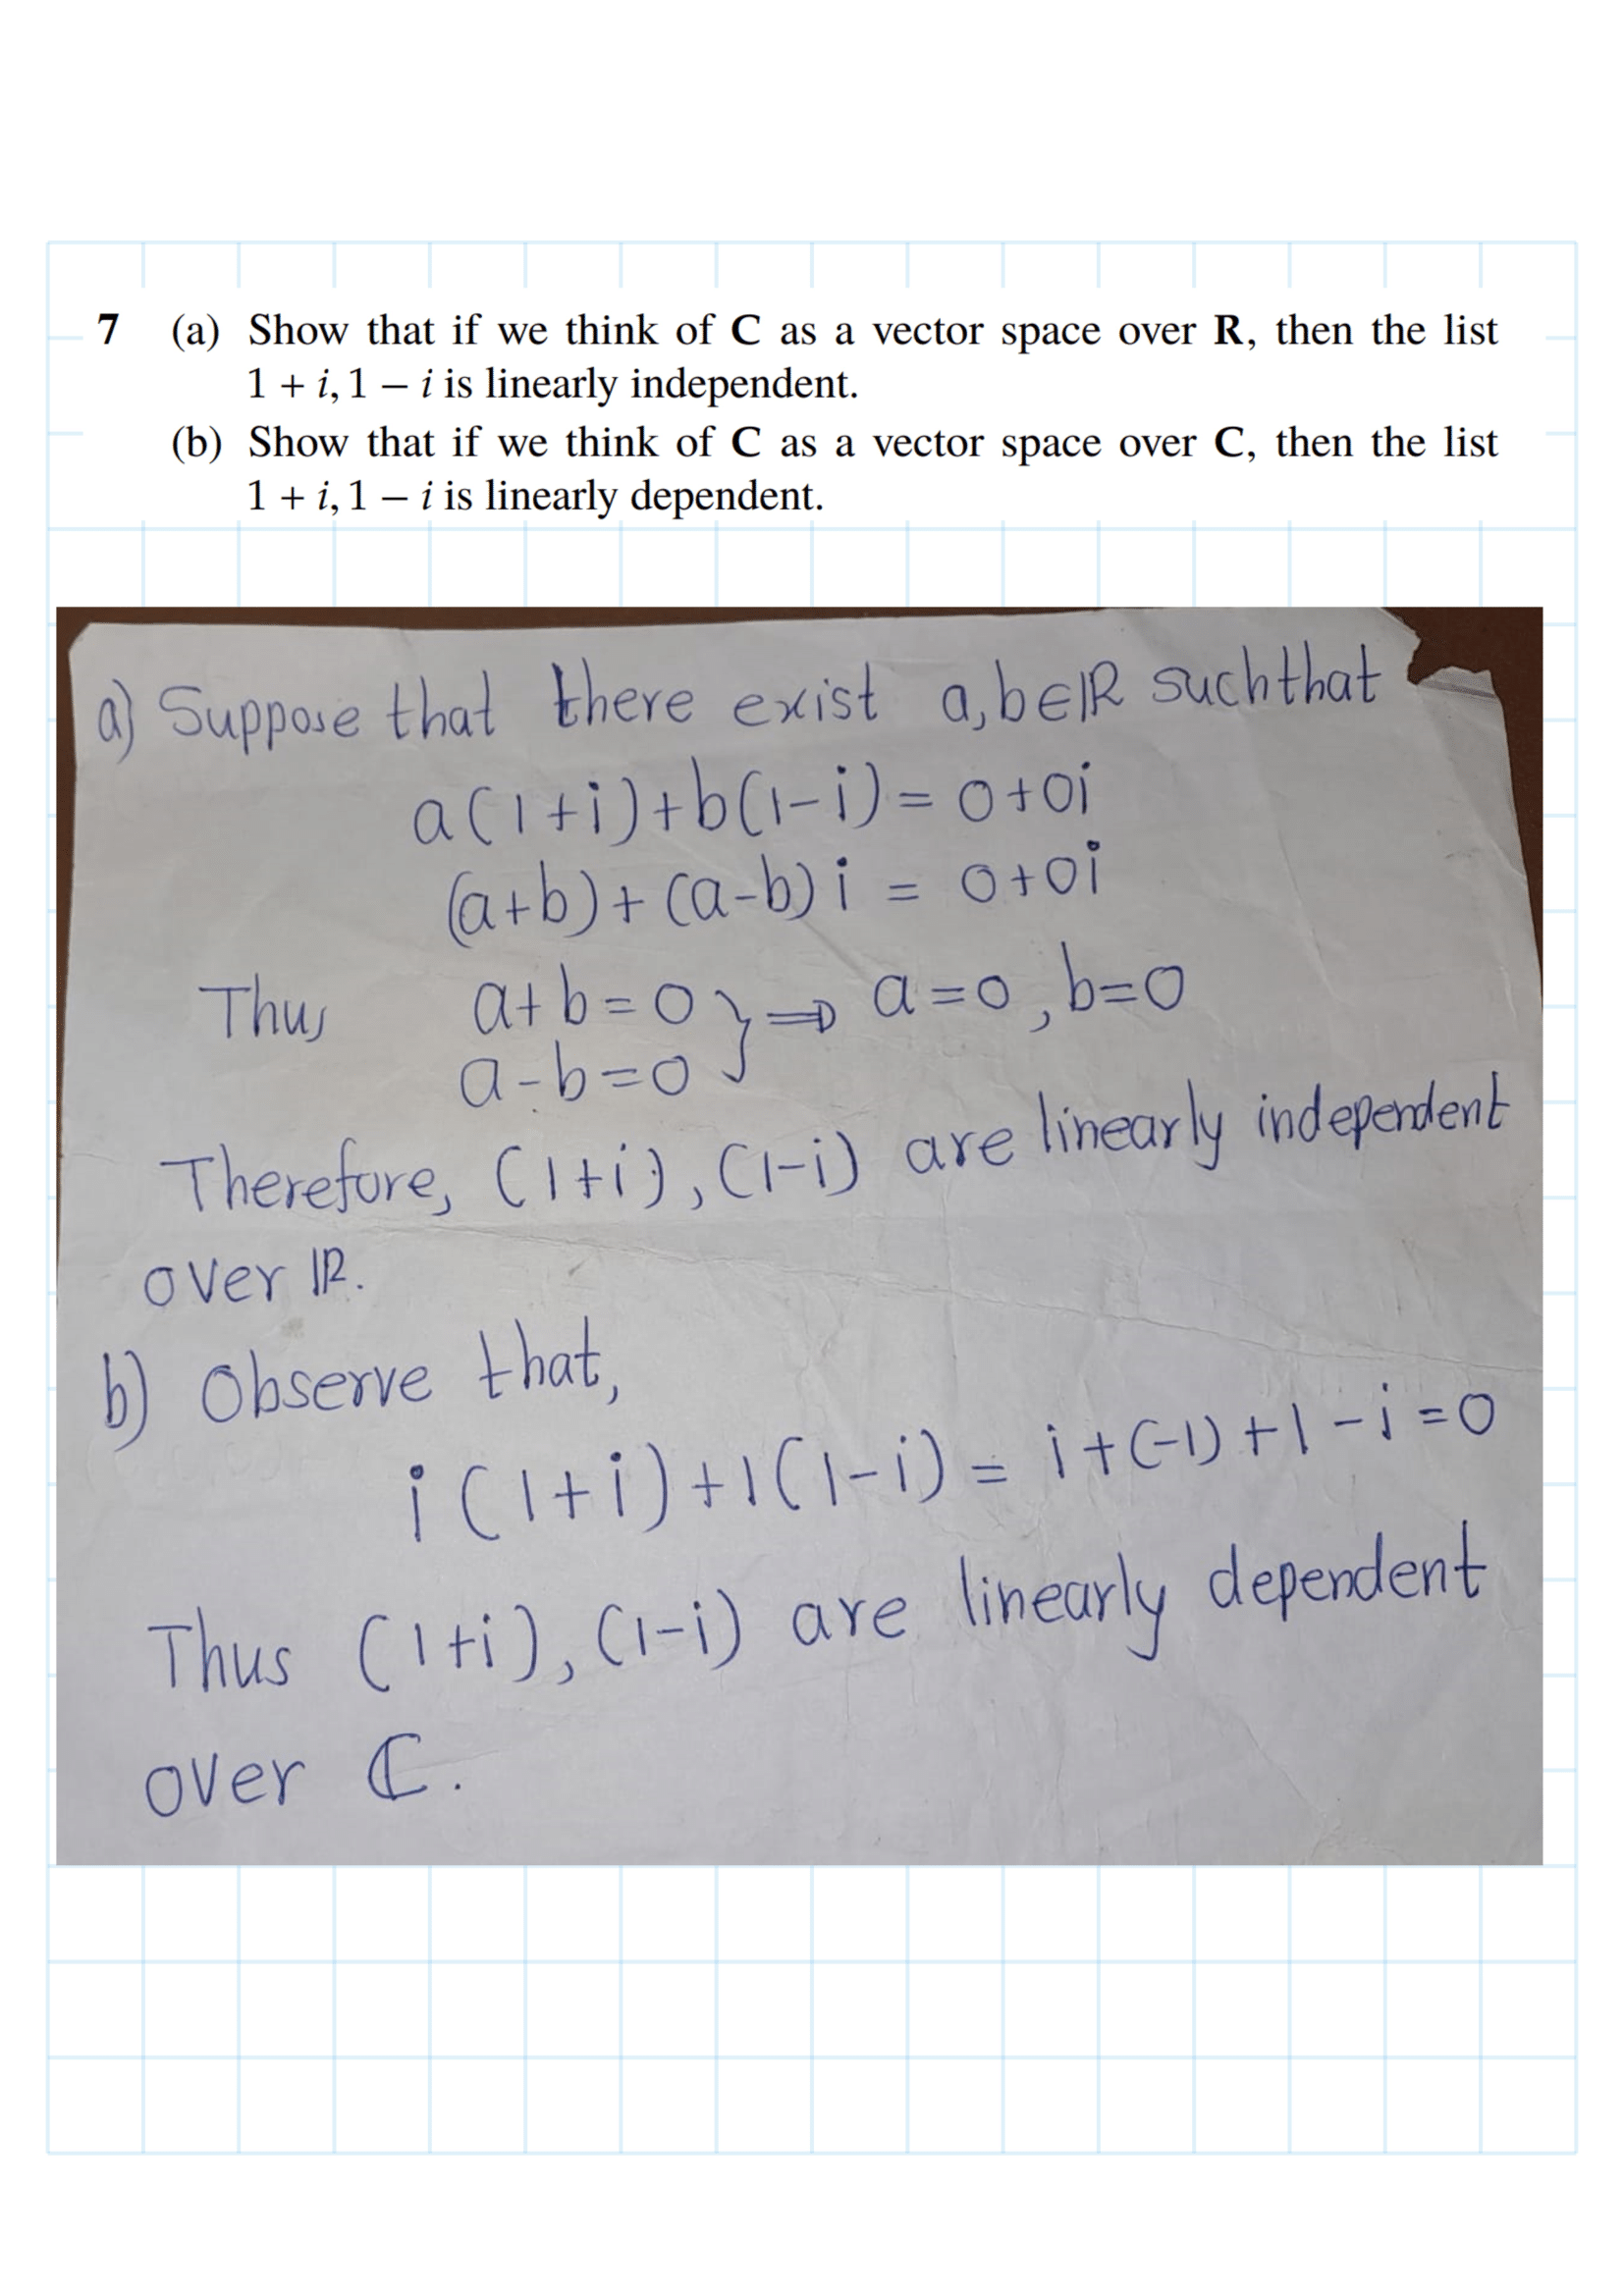 7 (a) Show that if we think of C as a vector space over R, then the list
1 + i, 1 − i is linearly independent.
(b) Show that if we think of C as a vector space over C, then the list
1 + i, 1 − i is linearly dependent.
a) Suppose that there exist a,b∈ℝ such that
a(1+i)+b(1-i)= 0+0i
(a+b)+(a-b)i = 0+0i
Thus a+b=0 } ⇒ a=0, b=0
a-b=0
Therefore, (1+i), (1-i) are linearly independent
over ℝ.
b) Observe that,
i(1+i)+1(1-i)= i+(-1)+1-i=0
Thus (1+i), (1-i) are linearly dependent
over ℂ.